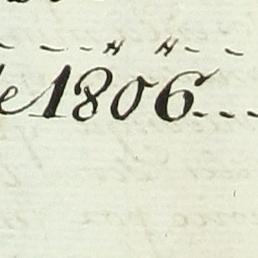 de 1806